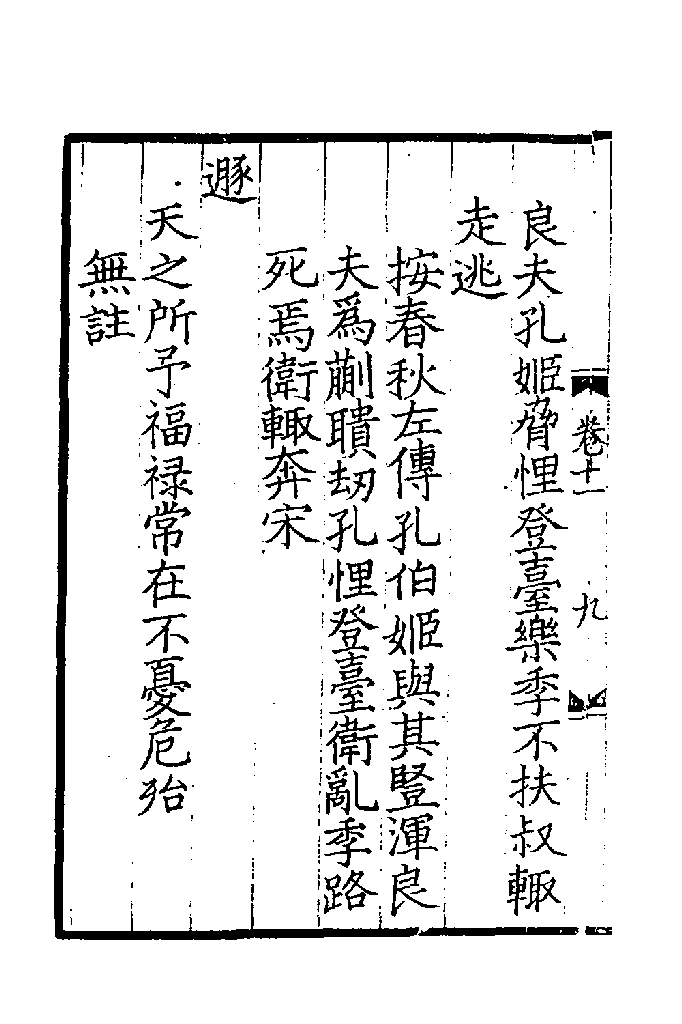 卷十一 九
良夫孔姬脅悝登臺樂季不扶叔輙
走逃
按春秋左傳孔伯姬與其豎渾良
夫爲蒯聵劫孔悝登臺衛亂季路
死焉衛輙奔宋
遯
天之所予福禄常在不憂危殆
無註